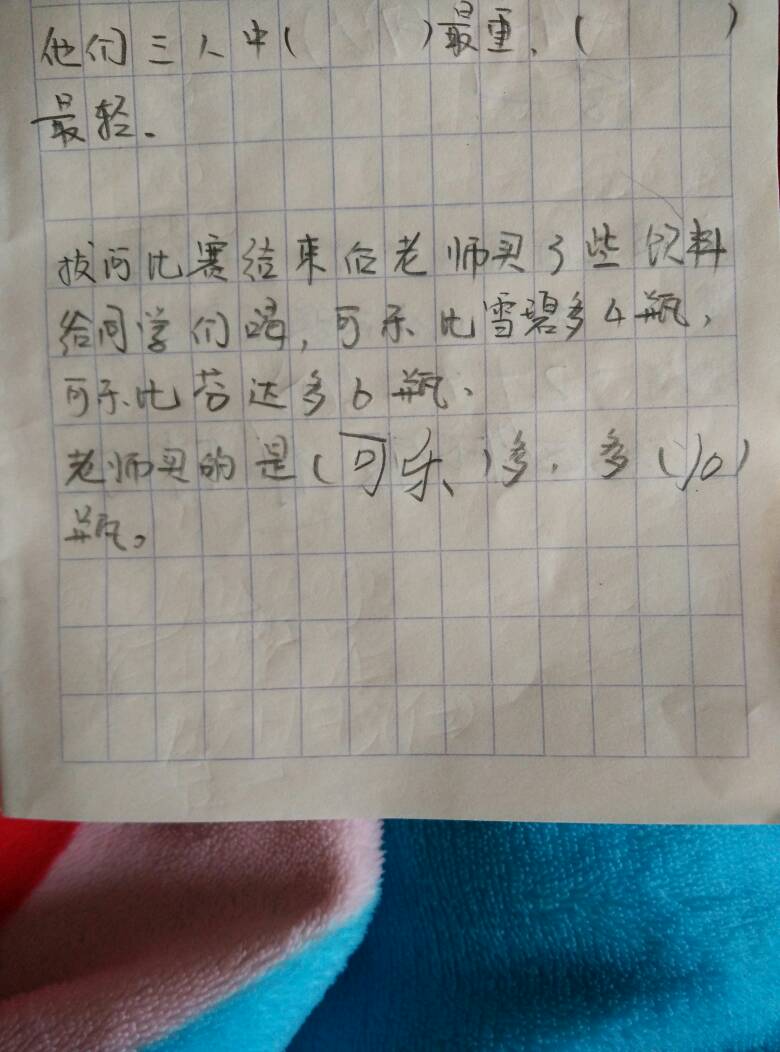 他们三人中( )最重,( )
最轻.
拔河比赛结束后老师买了些饮料
给同学们喝,可乐比雪碧多4瓶,
可乐比芬达多6瓶、
老师买的是(可乐)多,多(10)
瓶。